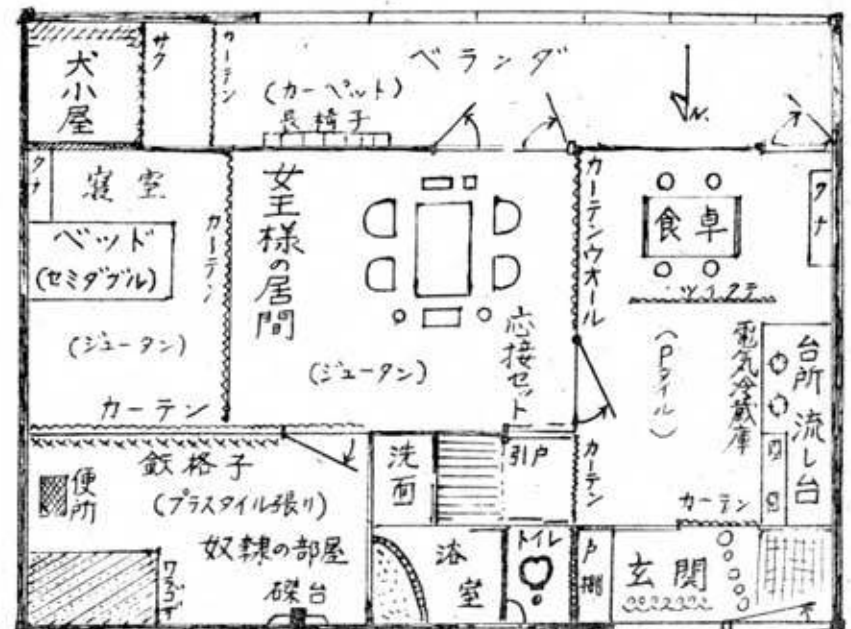 犬小屋
サク
カーテン
ベランダ
(カーペット)
長椅子
N.
タナ
寝室
ベッド
(セミダブル)
カーテン
(ジュータン)
カーテン
女王様の居間
(ジュータン)
応接セット
カーテンウオール
食卓
タナ
ツイタテ
(Pタイル)
電気冷蔵庫
台所流し台
カーテン
カーテン
鉄格子
(プラスタイル張り)
便所
奴隷の部屋
磔台
ワラブトン
洗面
引戸
浴室
トイレ
戸棚
玄関